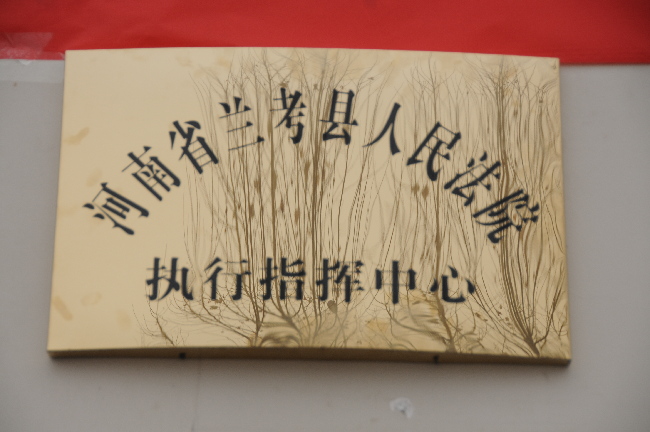 河南省兰考县人民法院
执行指挥中心